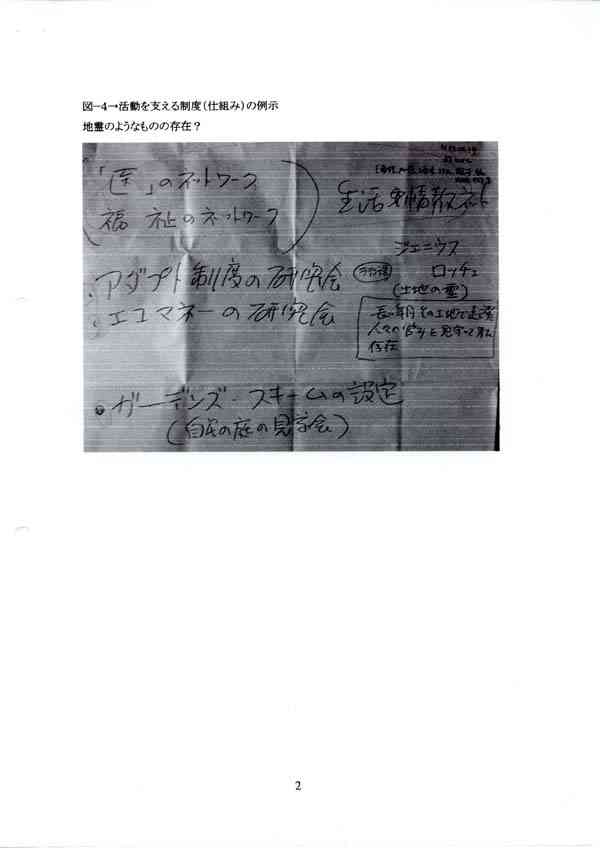 図－4→活動を支える制度（仕組み）の例示
地霊のようなものの存在？
「医」のネットワーク
福祉のネットワーク
生活
・アダプト制度の研究会
・エコマネーの研究会
・ガーデンズ・スキームの設定
（自宅の庭の見学会）
ジェニウス
ロッチュ
（土地の霊）
長い年月その土地で
人々の営みを見守って来た
存在
2